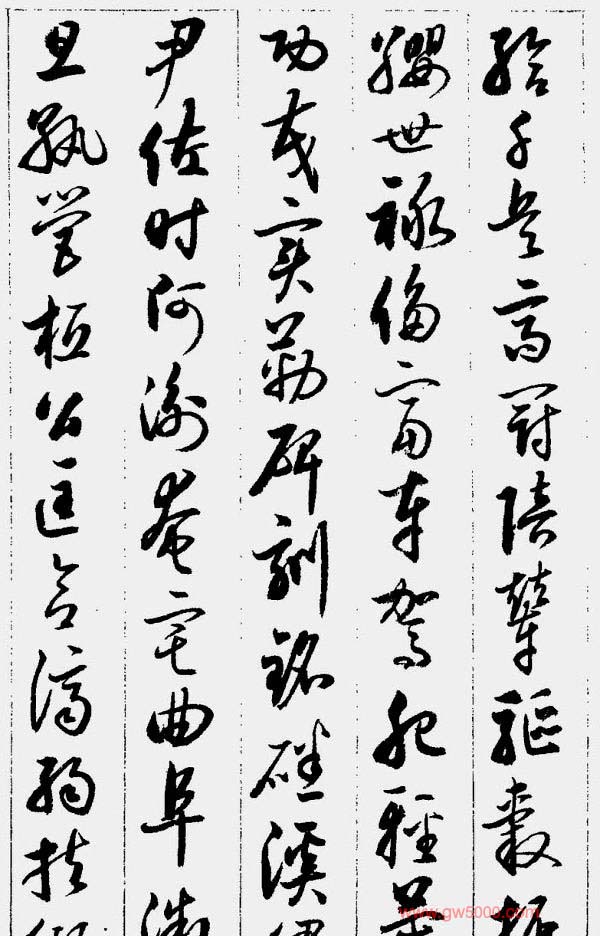 给千兵高冠陪辇驱毂振
缨世禄侈富车驾肥轻策
功茂实勒碑刻铭磻溪伊
尹佐时阿衡奄宅曲阜微
旦孰营桓公匡合济弱扶倾
www.gw5000.com